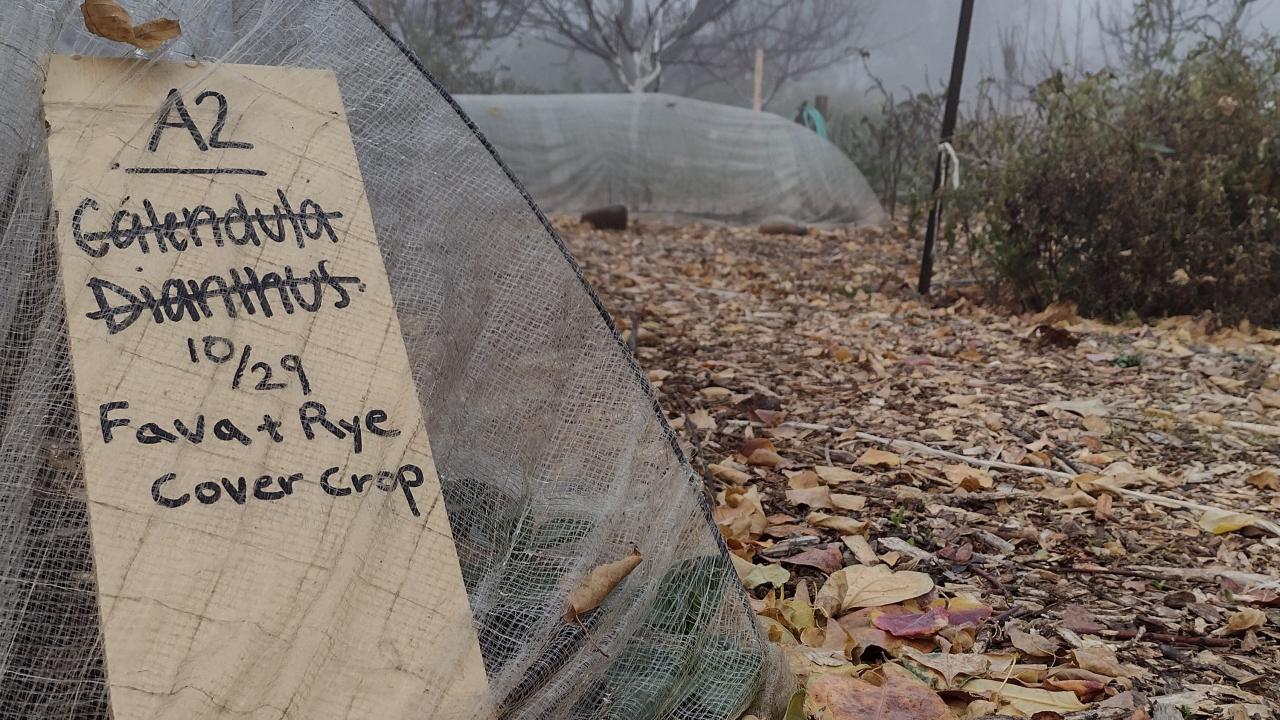 A2
Calendula
Dianthus
10/29
Fava + Rye
Cover Crop